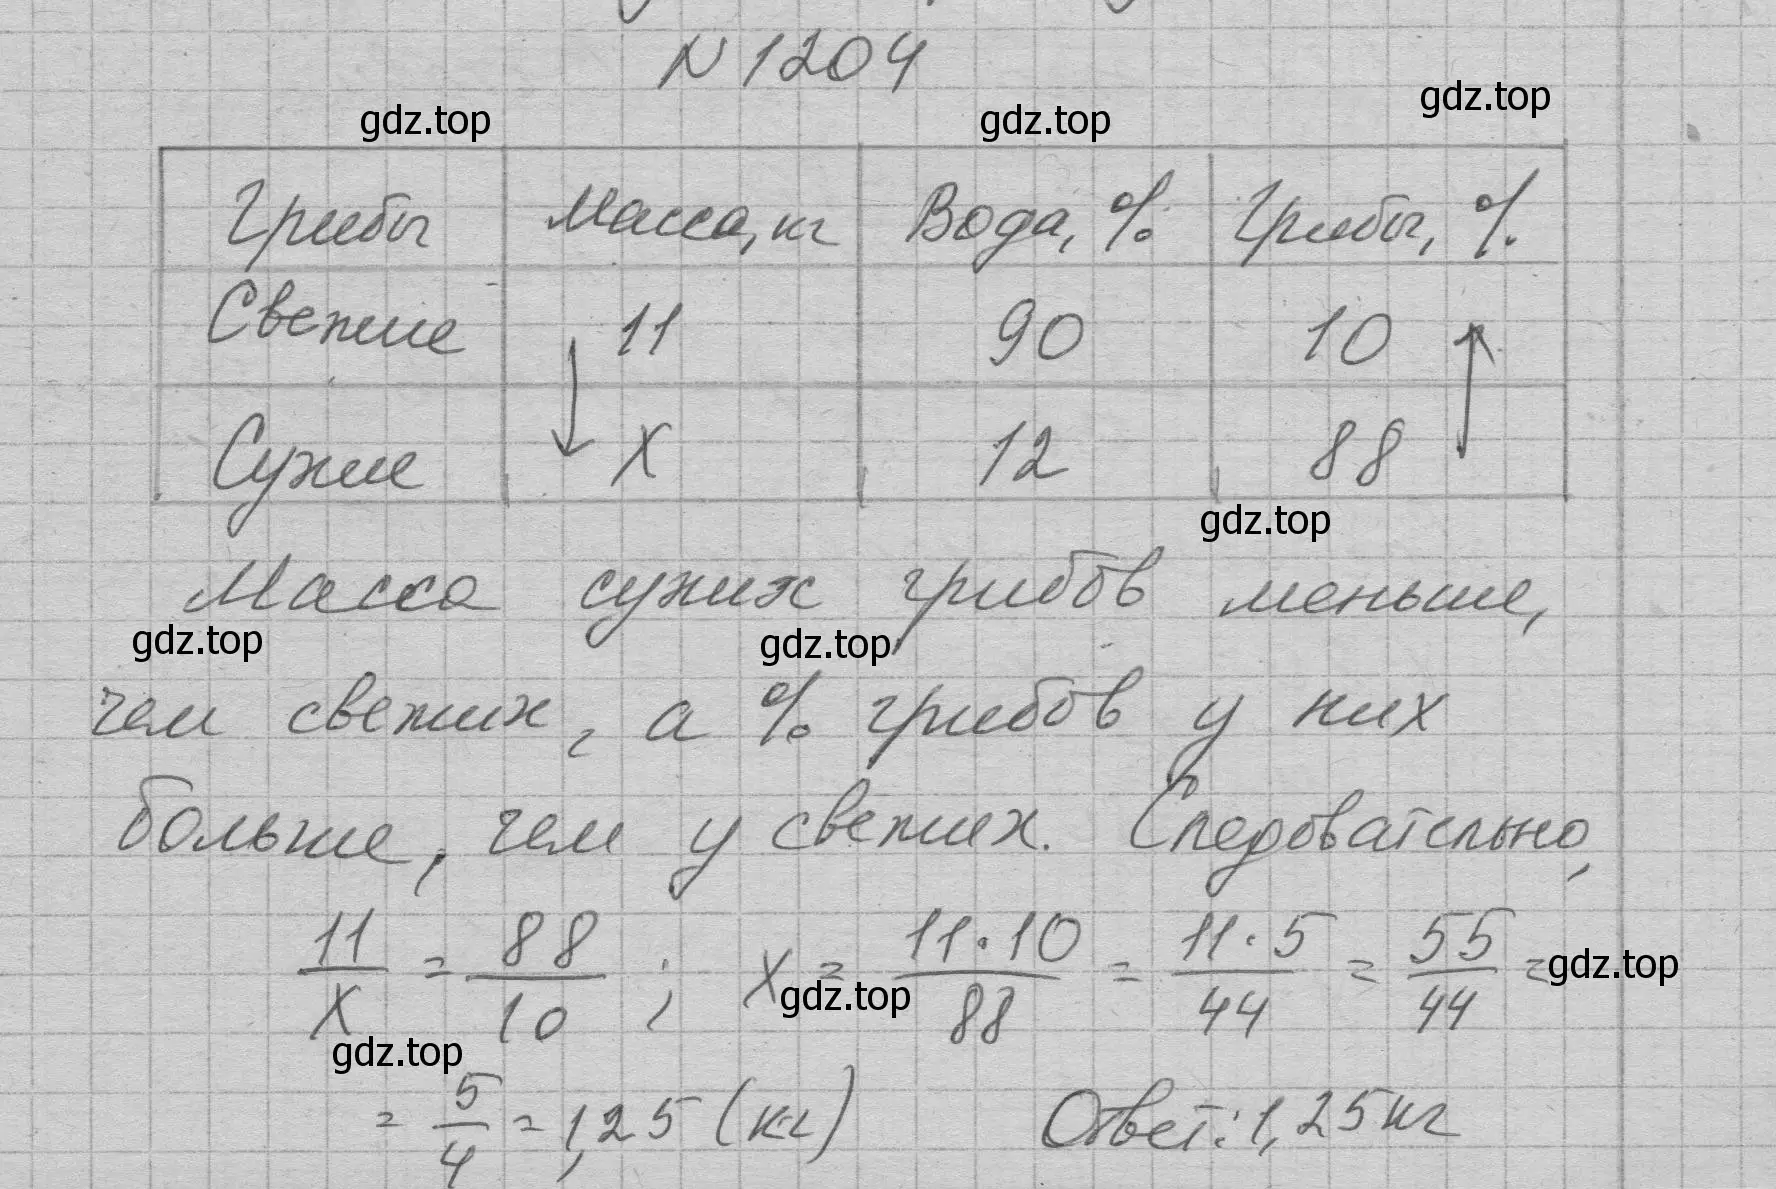 N 1204
gdz.top
gdz.top
gdz.top
Грибы Масса, кг Вода, % Грибы, %
Свежие 11 90 10
Сухие х 12 88
gdz.top
Масса сухих грибов меньше,
gdz.top
gdz.top
чем свежих, а % грибов у них
больше, чем у свежих. Следовательно,
11/х = 88/10 ; х = 11·10/88 = 11·5/44 = 55/44 =
gdz.top
gdz.top
gdz.top
= 5/4 = 1,25 (кг) Ответ: 1,25 кг